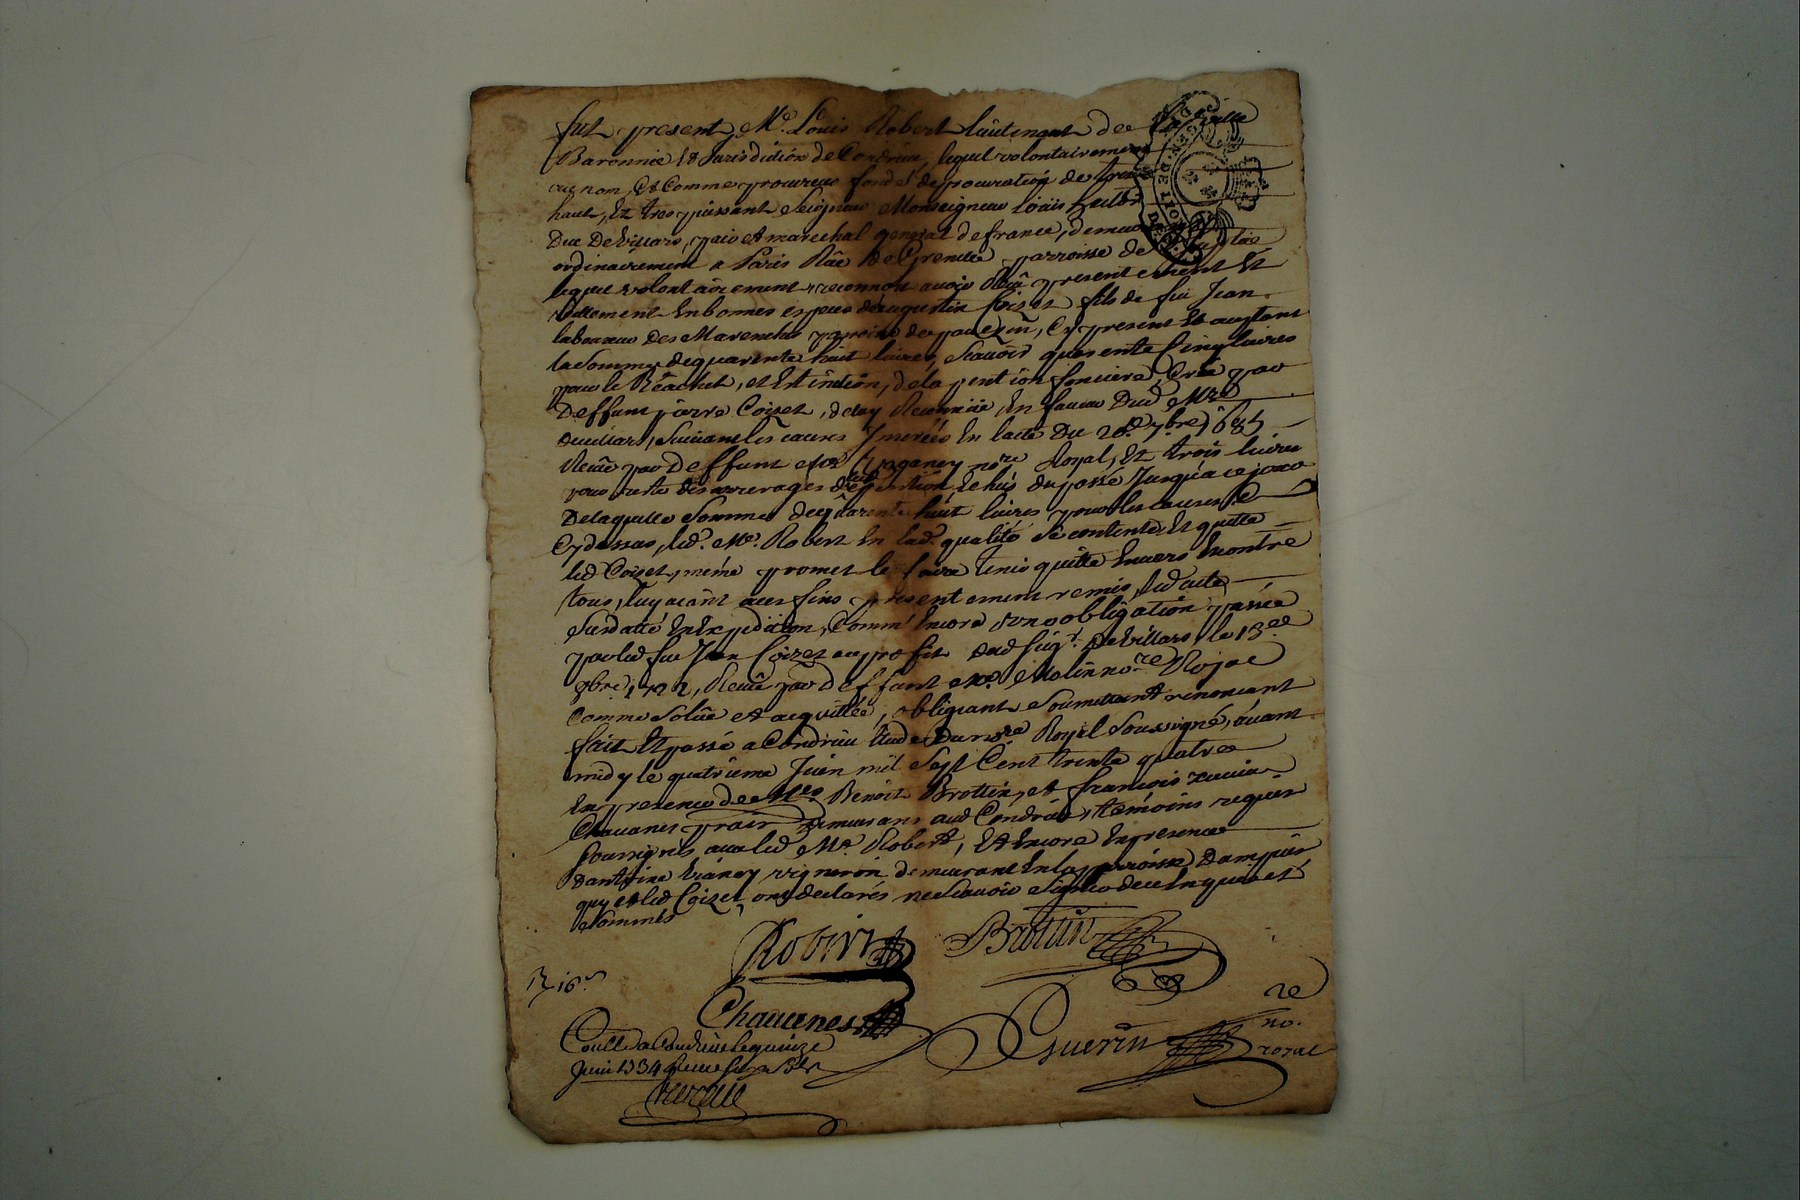 fut present, Me. Louis Robert lieutenant de la ville
Baronnie Et Jurisdiction de Condrieu, lequel volontairement
au nom Et Comme procureur fondé de procuration de tres
haut, Et tres puissant Seigneur Monseigneur Loüis hector
Duc De Villars, pair et marechal general de france, demeurant
ordinairement a Paris Rüe De Grenelle parroisse de
lequel volontairement reconnoit avoir Receu presentement Et
reellement En bonnes especes d'augustin Coizet fils de feu Jean
laboureur des paroisse de, Cy present Et acceptant
la Somme de quarente huit livres, Scavoir quarente Cinq livres
pour le Rachet, et Extinction, de la pention fonciere, Créé par
Deffunt pierre Coizet, En faveur Dud.
de villars, Suivant les causes Inserées En lacte Du 20e. 7bre 1685
Receu par Deffunt Me no.re Royal, Et trois livres
pour reste des arrerages de pention Echus du passé Jusqu'a ce jour
De laquelle Somme de quarente huit livres pour les causes
Cy dessus, led. Me. Robert En lad. qualité Se contente Et quitte
led Coizet, méme promet le faire tenir quitte Envers Et contre
tous, luy aiant aux fins presentement remis, lud acte
Susdatté En Expedition, Comm' Encore une obligation passée
par led feu Jean Coizet au profit dud Seigr. De Villars, le 13e.
9bre 1722, Receu par Deffunt Me. Molin no.re Royal
Comme Solüe et acquittée, obligeant Soumettant renoncant
fait Et passé a Condrieu Etude Du no.re Royal Soussigné, avant
midy le quatrieme Juin mil Sept Cent trente quatre
En presence de Mes Benoit Brottin, et francois xavier
Chavanes demeurans aud Condrieu, temoins requis
Soussignés avec led Me. Robert, Et Encore En presence
d'antoine vigneron demeurant En la parroisse Dampuis
quy et led Coizet ont declarés ne Scavoir Signer de ce Enquis et
Sommés
Robert Brottin
Chavanes Guerin no.re royal
Con.llé a Condrieu le quinze
Juin 1734